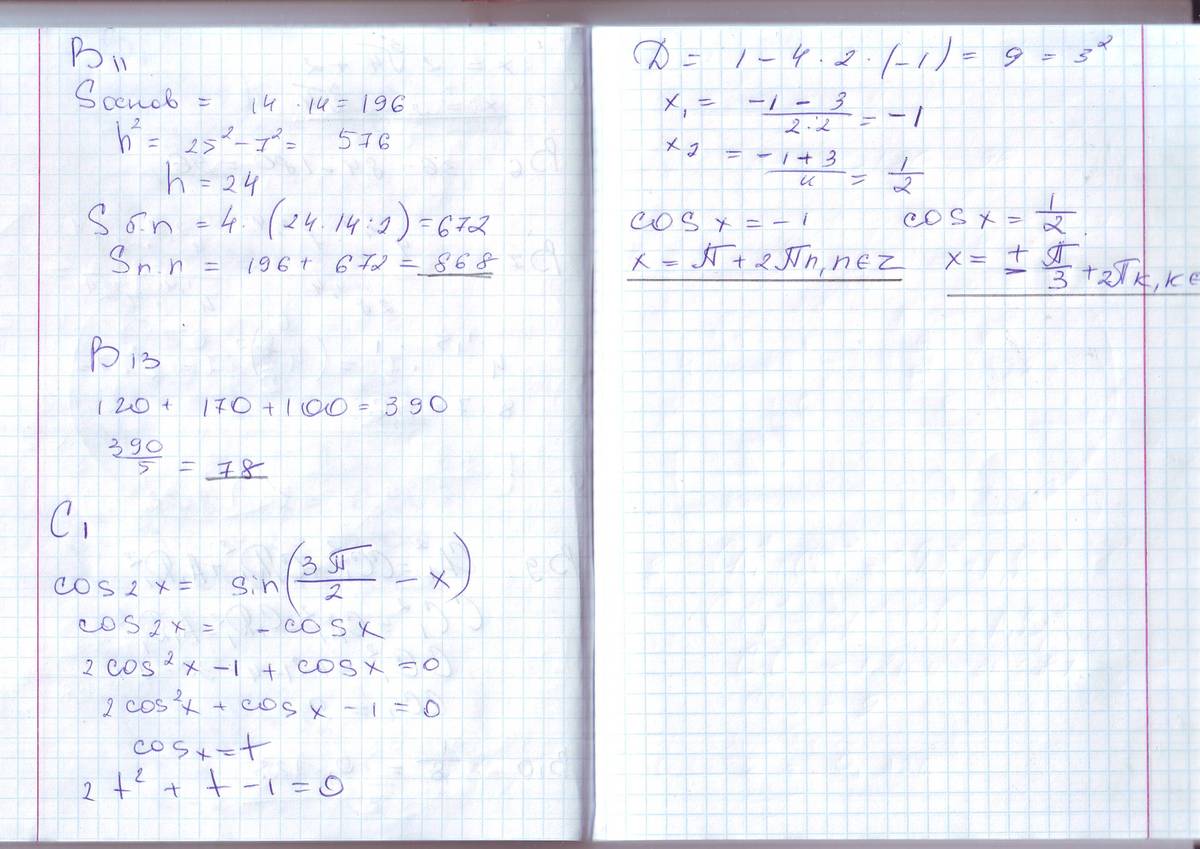 B11
Sоснов = 14 · 14 = 196
h² = 25² - 7² = 576
h = 24
S б.п = 4 · (24 · 14 : 2) = 672
Sп.п = 196 + 672 = 868
B13
120 + 170 + 100 = 390
390/5 = 78
C1
cos2x = sin(3π/2 - x)
cos2x = -cosx
2cos²x - 1 + cosx = 0
2cos²x + cosx - 1 = 0
cosx = t
2t² + t - 1 = 0
Д = 1 - 4 · 2 · (-1) = 9 = 3²
x₁ = (-1 - 3)/(2·2) = -1
x₂ = (-1 + 3)/4 = 1/2
cosx = -1 cosx = 1/2.
x = π + 2πn, n∈z x = ± π/3 + 2πk, k∈